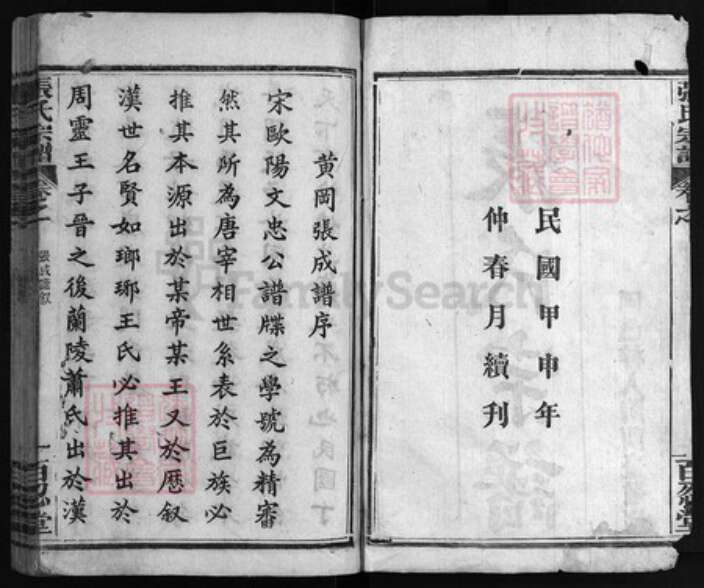 張氏宗譜
民國甲申年
仲春月續刊
百忍堂
黄岡張成譜序
宋歐陽文忠公譜牒之學號為精審
然其所為唐宰相世系表於巨族必
推其本源出於某帝某王又於歷叙
漢世名賢如瑯琊王氏必推其出於
周靈王子晉之後蘭陵蕭氏出於漢
張氏宗譜
卷之一
一
百忍堂
FamilySearch